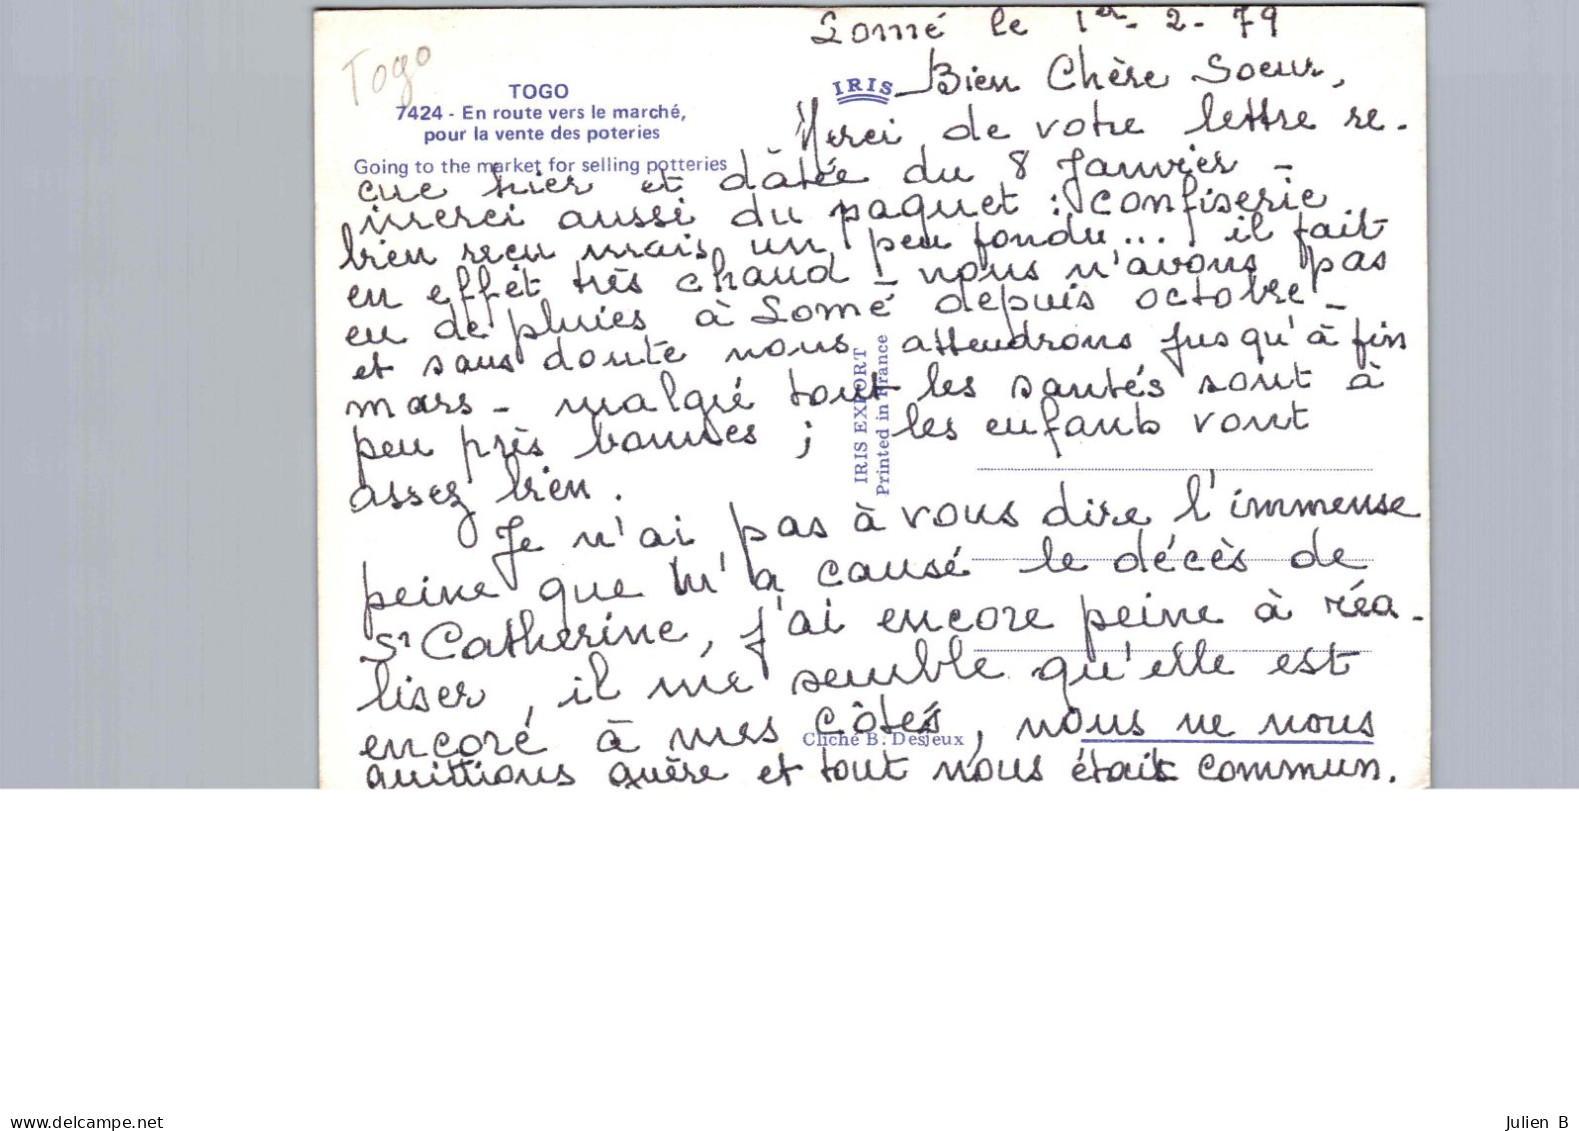 Lomé le 1er - 2 - 79
Togo
TOGO
7424 - En route vers le marché,
pour la vente des poteries
Going to the market for selling potteries
IRIS
Bien Chère Soeur,
Merci de votre lettre re-
çue hier et dâtée du 8 Janvier -
merci aussi du paquet : confiserie
bien reçu mais un peu fondu... il fait
en effet très chaud - nous n'avons pas
eu de pluies à Lomé depuis octobre -
et sans doute nous attendrons jusqu'à fin
mars - malgré tout les santés sont à
peu près bonnes ; les enfants vont
assez bien.
Je n'ai pas à vous dire l'immense
peine que m'a causé le décès de
Sr Catherine, j'ai encore peine à réa-
liser, il me semble qu'elle est
encore à mes côtés, nous ne nous
quittions guère et tout nous était commun.
IRIS EXPORT
Printed in France
Cliché B. Desjeux
www.delcampe.net
Julien B